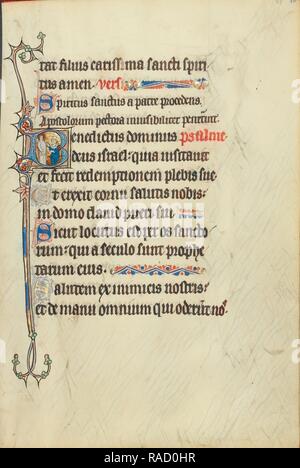 tat filius carissima sancti spiri
tus amen. vers
Spiritus sanctus a patre procedens.
Apostolorum pectora invisibiliter penetravit.
Benedictus dominus psalme
deus israel: quia visitavit
et fecit redemptionem plebis sue
Et erexit cornu salutis nobis:
in domo david pueri sui.
Sicut locutus est per os sancto
rum: qui a seculo sunt prophe
tarum eius.
Salutem ex inimicis nostris:
et de manu omnium qui oderunt nos.
alamy
RAD0HR
www.alamy.com